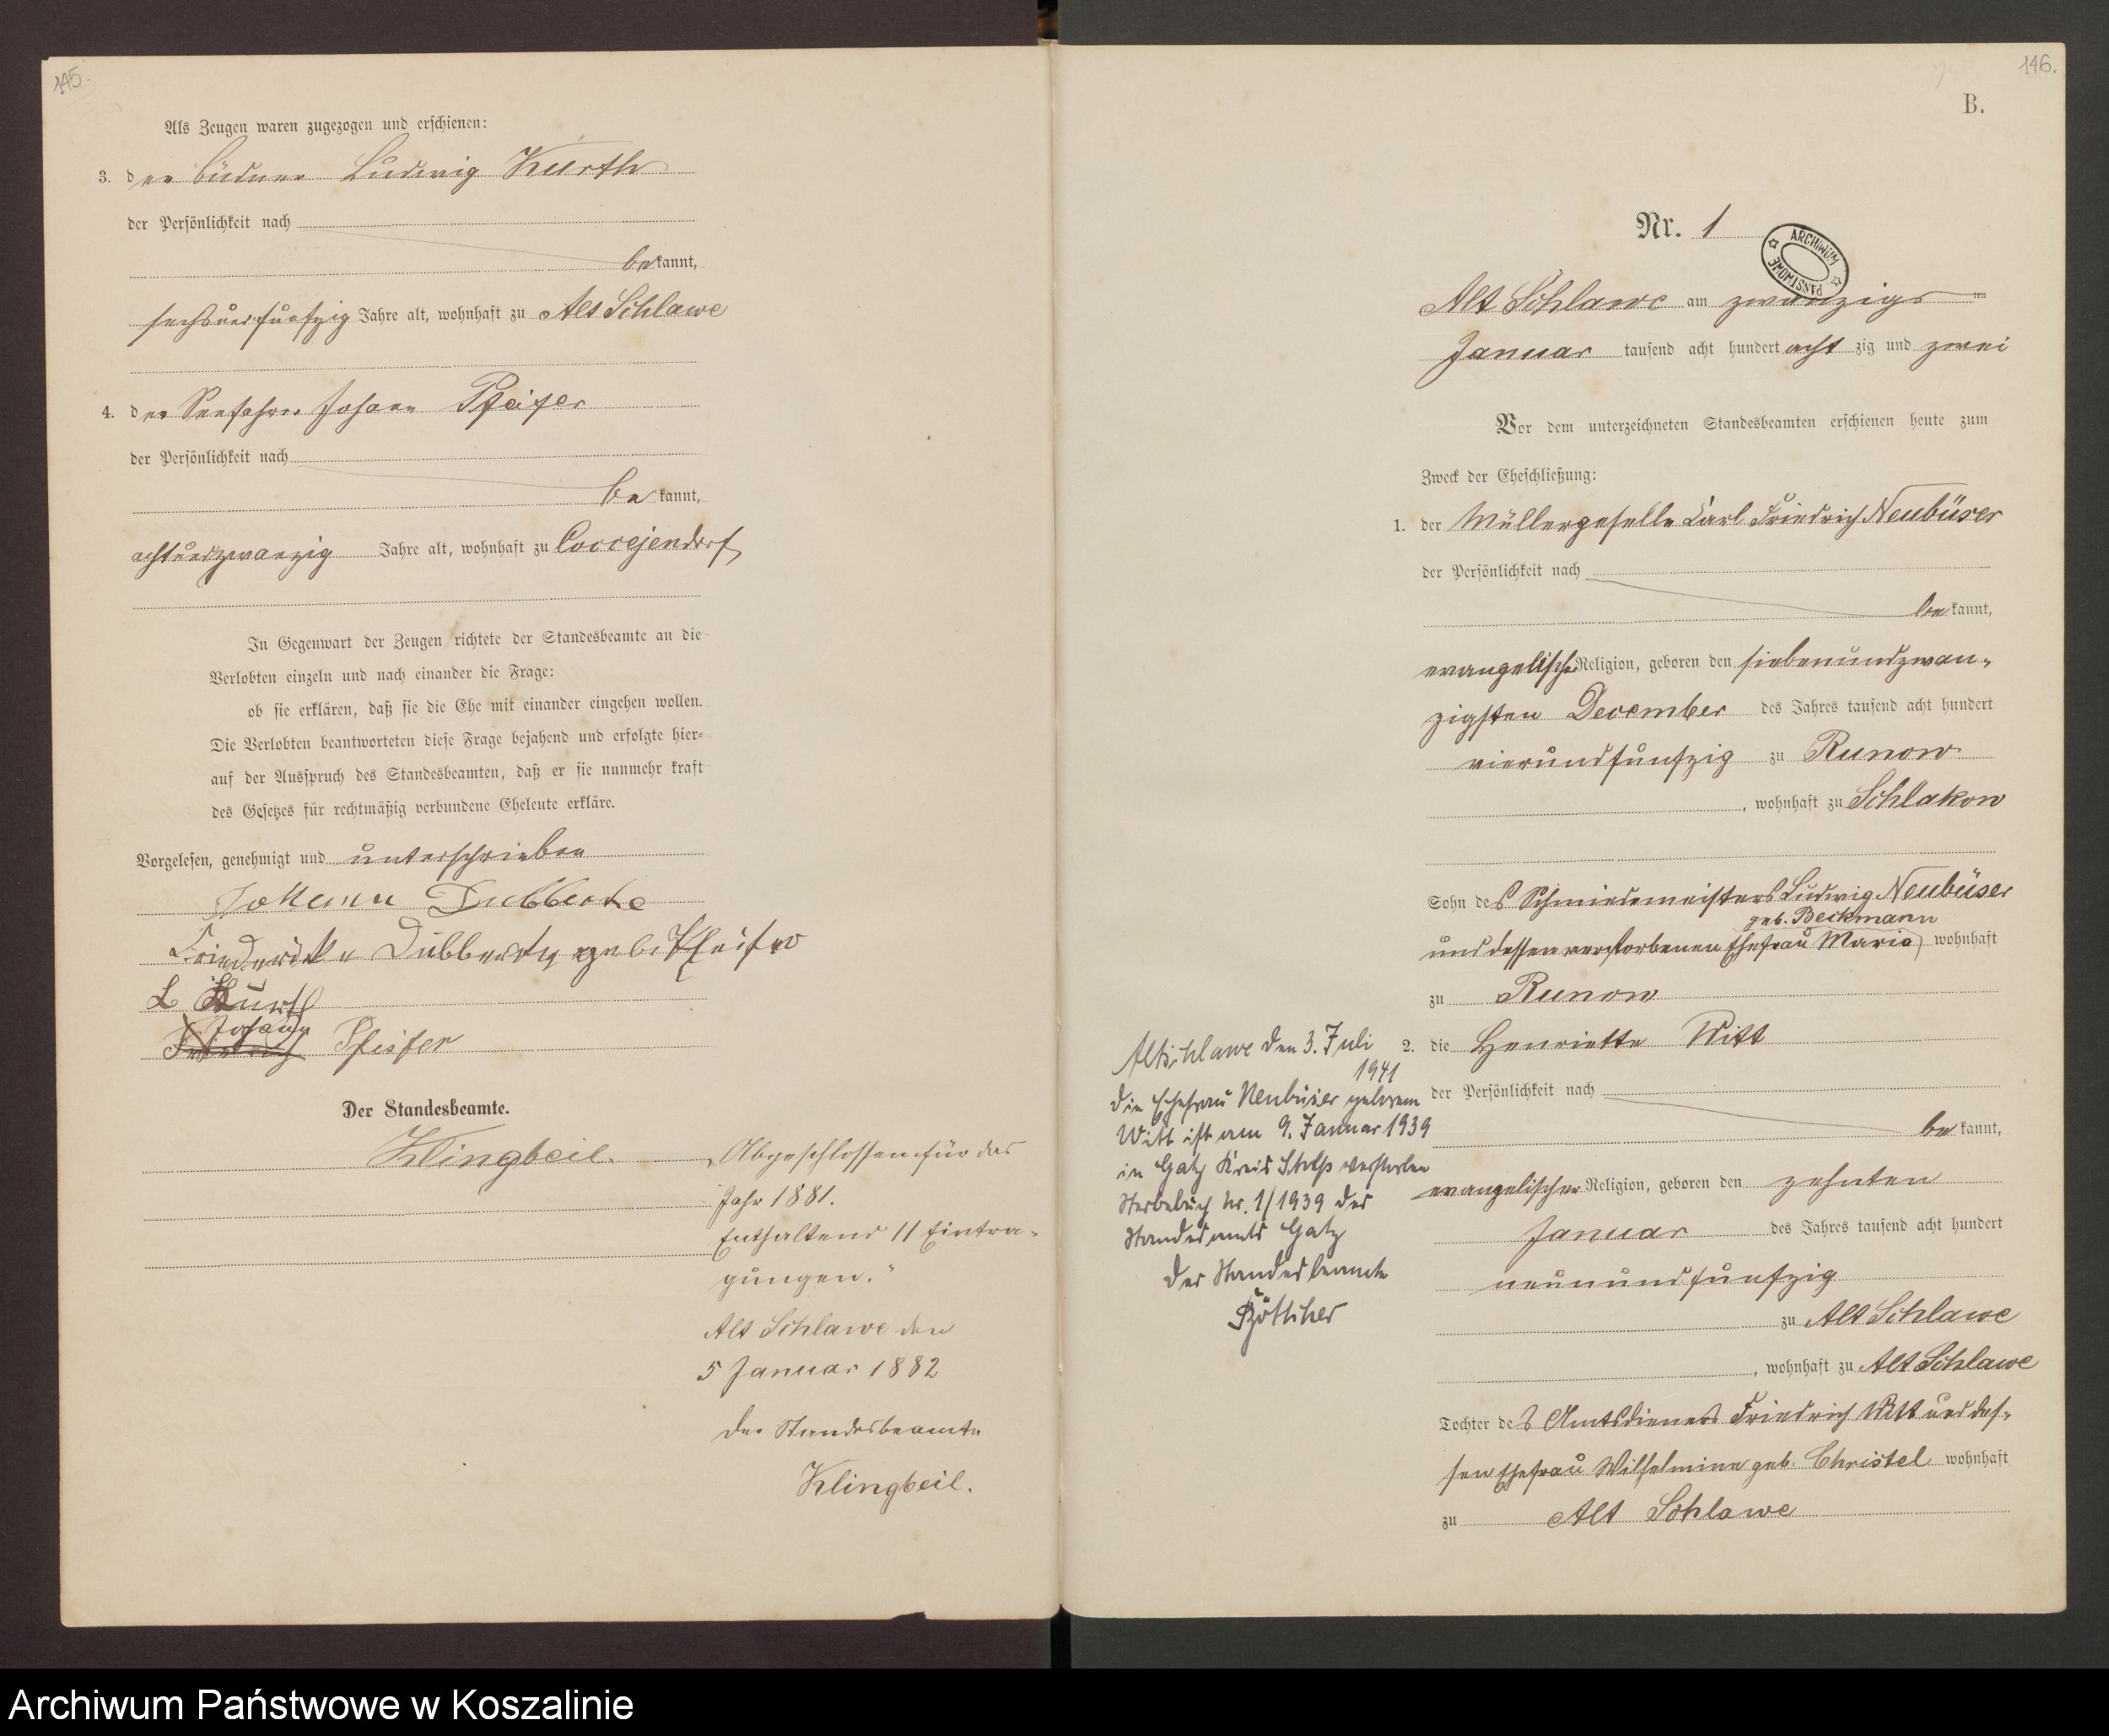 145.
Als Zeugen waren zugezogen und erschienen:
3. der Büdner Ludwig Kurth
der Persönlichkeit nach
bekannt,
sechsundfunfzig Jahre alt, wohnhaft zu Alt Schlawe
4. der Seefahrer Johann Pfeifer
der Persönlichkeit nach
bekannt,
achtundzwanzig Jahre alt, wohnhaft zu Coccejendorf
In Gegenwart der Zeugen richtete der Standesbeamte an die
Verlobten einzeln und nach einander die Frage:
ob sie erklären, daß sie die Ehe mit einander eingehen wollen.
Die Verlobten beantworteten diese Frage bejahend und erfolgte hier-
auf der Ausspruch des Standesbeamten, daß er sie nunmehr kraft
des Gesetzes für rechtmäßig verbundene Eheleute erkläre.
Vorgelesen, genehmigt und unterschrieben
Johann Dubberke
Friederike Dubberke geb. Pfeifer
L Kurth
Johann
Friedrich Pfeifer
Der Standesbeamte.
Klingbeil.
„Abgeschlossen für das
Jahr 1881.
Enthaltend 11 Eintra-
gungen.“
Alt Schlawe den
5 Januar 1882
Der Standesbeamte
Klingbeil.
146.
B.
Nr. 1
ARCHIWUM PAŃSTWOWE
Alt Schlawe am zwanzigsten
Januar tausend acht hundert acht zig und zwei
Vor dem unterzeichneten Standesbeamten erschienen heute zum
Zweck der Eheschließung:
1. der Müllergeselle Carl Friedrich Neubüser
der Persönlichkeit nach
bekannt,
evangelischer Religion, geboren den siebenundzwan-
zigsten December des Jahres tausend acht hundert
vierundfunfzig zu Runow
, wohnhaft zu Schlakow
Sohn des Schmiedemeisters Ludwig Neubüser
geb. Beckmann
und dessen verstorbenen Ehefrau Marie wohnhaft
zu Runow
2. die Henriette Witt
der Persönlichkeit nach
bekannt,
evangelischer Religion, geboren den zehnten
Januar des Jahres tausend acht hundert
neunundfunfzig
zu Alt Schlawe
, wohnhaft zu Alt Schlawe
Tochter des Amtsdieners Friedrich Witt und des-
sen Ehefrau Wilhelmine geb. Christel wohnhaft
zu Alt Schlawe
Altschlawe den 3. Juli
1941
Die Ehefrau Neubüser geborene
Witt ist am 9. Januar 1939
in Gatz Kreis Stolp verstorben
Sterbebuch Nr. 1/1939 des
Standesamts Gatz
Der Standesbeamte
Böttcher
Archiwum Państwowe w Koszalinie